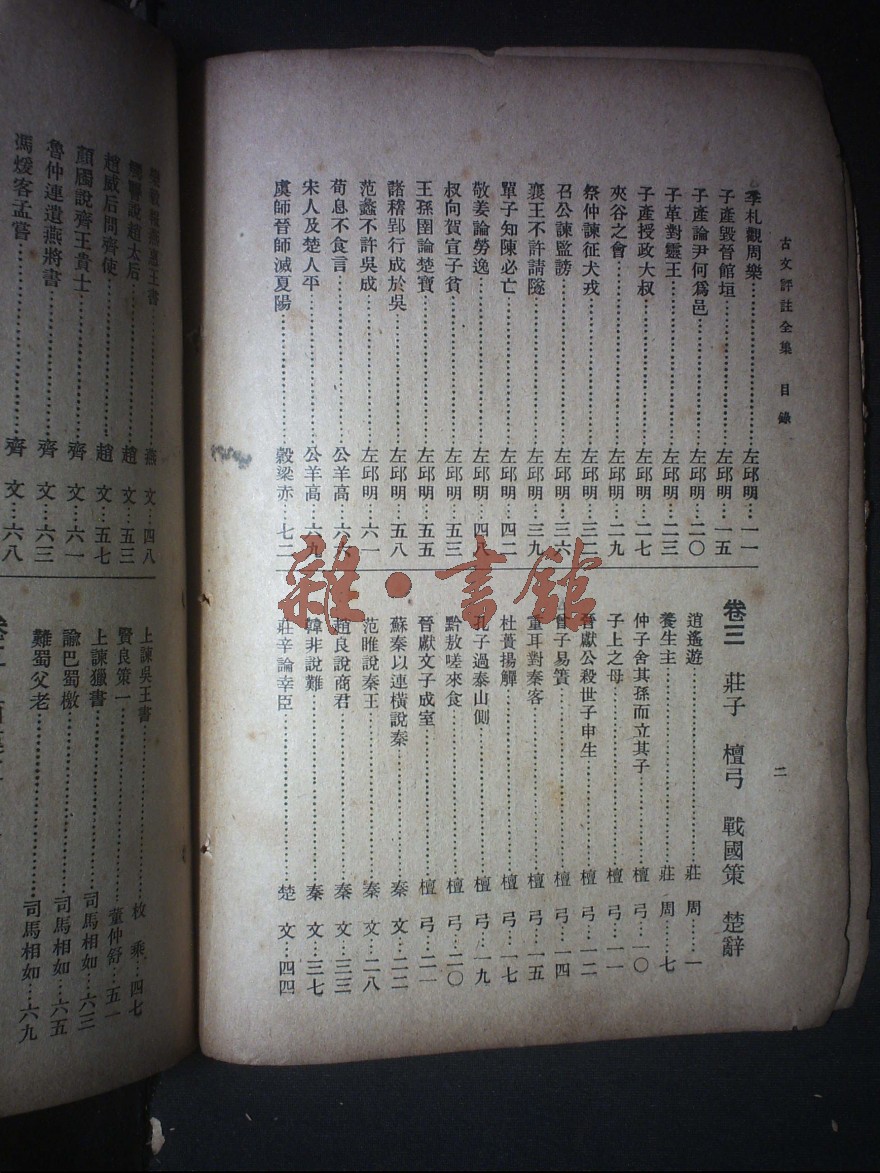 古文評註全集　目錄
二
季札觀周樂……左邱明…一一
子產毀晉館垣……左邱明…一五
子產論尹何為邑……左邱明…二〇
子革對靈王……左邱明…二三
子產授政大叔……左邱明…二七
夾谷之會……左邱明…二九
祭仲諫征犬戎……左邱明…三二
召公諫監謗……左邱明…三六
襄王不許請隧……左邱明…三九
單子知陳必亡……左邱明…四二
敬姜論勞逸……左邱明…四八
叔向賀宣子貧……左邱明…五三
王孫圉論楚寶……左邱明…五五
諸稽郢行成於吳……左邱明…五八
范蠡不許吳成……左邱明…六一
荀息不食言……公羊高…六六
宋人及楚人平……公羊高…六九
虞師晉師滅夏陽……穀梁赤…七二
卷三　莊子　檀弓　戰國策　楚辭
逍遙遊……莊　周…一
養生主……莊　周…七
仲子舍其孫而立其子……檀　弓…一〇
子上之母……檀　弓…一一
晉獻公殺世子申生……檀　弓…一二
曾子易簀……檀　弓…一四
重耳對秦客……檀　弓…一五
杜蕢揚觶……檀　弓…一七
孔子過泰山側……檀　弓…一九
黔敖嗟來食……檀　弓…二〇
晉獻文子成室……檀　弓…二一
蘇秦以連橫說秦……秦　文…二二
范睢說秦王……秦　文…二八
趙良說商君……秦　文…三三
韓非說難……秦　文…三七
莊辛論幸臣……楚　文…四四
燕　文…四八
說趙太后……趙　文…五三
趙威后問齊使……趙　文…五七
顏斶說齊王貴士……齊　文…六一
魯仲連遺燕將書……齊　文…六三
馮煖客孟嘗……齊　文…六八
上諫吳王書……枚　乘…四七
賢良策一……董仲舒…五一
上諫獵書……司馬相如…六三
諭巴蜀檄……司馬相如…六五
難蜀父老……司馬相如…六九
雜·書館